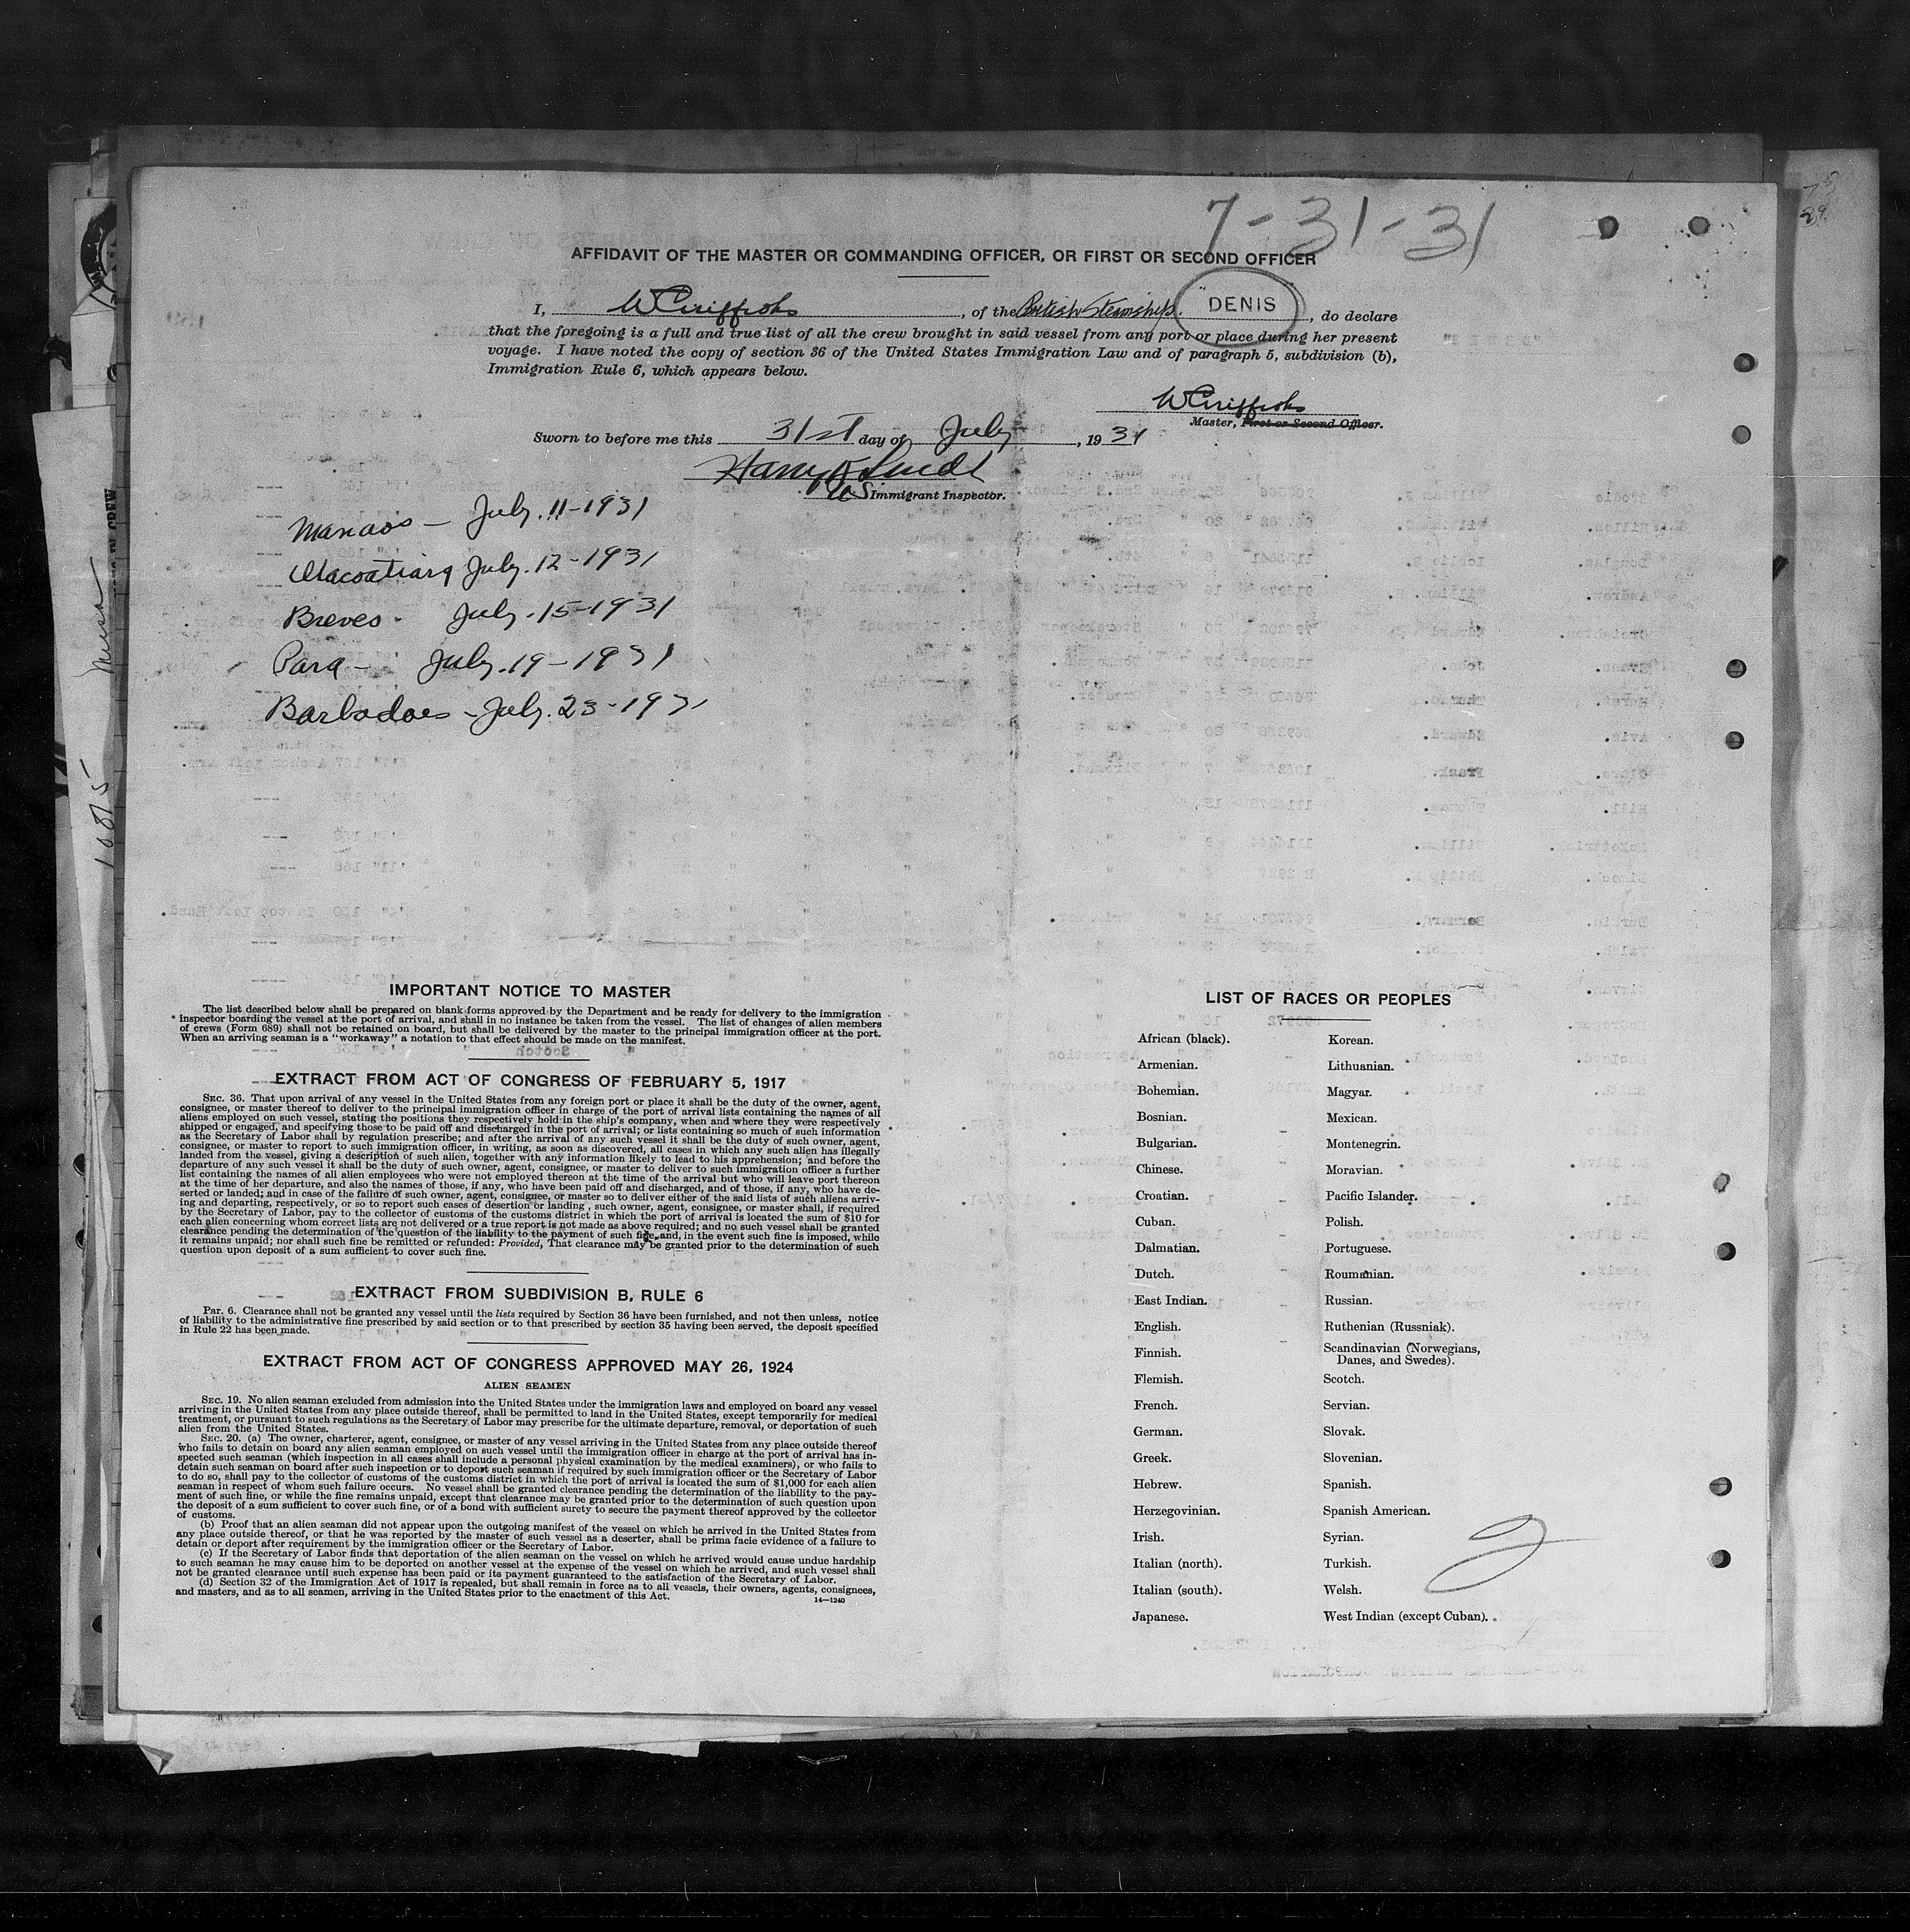 7-31-31
AFFIDAVIT OF THE MASTER OR COMMANDING OFFICER, OR FIRST OR SECOND OFFICER
I, W Griffiths, of the British Steamship "DENIS", do declare
that the foregoing is a full and true list of all the crew brought in said vessel from any port or place during her present
voyage. I have noted the copy of section 36 of the United States Immigration Law and of paragraph 5, subdivision (b),
Immigration Rule 6, which appears below.
W Griffiths
Master, First or Second Officer.
Sworn to before me this 31st day of July, 1931
Harry
US Immigrant Inspector.
Manaos - July. 11-1931
Itacoatiara July. 12-1931
Breves - July. 15-1931
Para - July. 19-1931
Barbadoes - July. 23-1931
10875
IMPORTANT NOTICE TO MASTER
The list described below shall be prepared on blank forms approved by the Department and be ready for delivery to the immigration
inspector boarding the vessel at the port of arrival, and shall in no instance be taken from the vessel. The list of changes of alien members
of crews (Form 689) shall not be retained on board, but shall be delivered by the master to the principal immigration officer at the port.
When an arriving seaman is a "workaway" a notation to that effect should be made on the manifest.
EXTRACT FROM ACT OF CONGRESS OF FEBRUARY 5, 1917
SEC. 36. That upon arrival of any vessel in the United States from any foreign port or place it shall be the duty of the owner, agent,
consignee, or master thereof to deliver to the principal immigration officer in charge of the port of arrival lists containing the names of all
aliens employed on such vessel, stating the positions they respectively hold in the ship's company, when and where they were respectively
shipped or engaged, and specifying those to be paid off and discharged in the port of arrival; or lists containing so much of such information
as the Secretary of Labor shall by regulation prescribe; and after the arrival of any such vessel it shall be the duty of such owner, agent,
consignee, or master to report to such immigration officer, in writing, as soon as discovered, all cases in which any such alien has illegally
landed from the vessel, giving a description of such alien, together with any information likely to lead to his apprehension; and before the
departure of any such vessel it shall be the duty of such owner, agent, consignee, or master to deliver to such immigration officer a further
list containing the names of all alien employees who were not employed thereon at the time of the arrival but who will leave port thereon
at the time of her departure, and also the names of those, if any, who have been paid off and discharged, and of those, if any, who have de-
serted or landed; and in case of the failure of such owner, agent, consignee, or master so to deliver either of the said lists of such aliens arriv-
ing and departing, respectively, or so to report such cases of desertion or landing, such owner, agent, consignee, or master shall, if required
by the Secretary of Labor, pay to the collector of customs of the customs district in which the port of arrival is located the sum of $10 for
each alien concerning whom correct lists are not delivered or a true report is not made as above required; and no such vessel shall be granted
clearance pending the determination of the question of the liability to the payment of such fine, and, in the event such fine is imposed, while
it remains unpaid; nor shall such fine be remitted or refunded: Provided, That clearance may be granted prior to the determination of such
question upon deposit of a sum sufficient to cover such fine.
EXTRACT FROM SUBDIVISION B, RULE 6
PAR. 6. Clearance shall not be granted any vessel until the lists required by Section 36 have been furnished, and not then unless, notice
of liability to the administrative fine prescribed by said section or to that prescribed by section 35 having been served, the deposit specified
in Rule 22 has been made.
EXTRACT FROM ACT OF CONGRESS APPROVED MAY 26, 1924
ALIEN SEAMEN
SEC. 19. No alien seaman excluded from admission into the United States under the immigration laws and employed on board any vessel
arriving in the United States from any place outside thereof, shall be permitted to land in the United States, except temporarily for medical
treatment, or pursuant to such regulations as the Secretary of Labor may prescribe for the ultimate departure, removal, or deportation of such
alien from the United States.
SEC. 20. (a) The owner, charterer, agent, consignee, or master of any vessel arriving in the United States from any place outside thereof
who fails to detain on board any alien seaman employed on such vessel until the immigration officer in charge at the port of arrival has in-
spected such seaman (which inspection in all cases shall include a personal physical examination by the medical examiners), or who fails to
detain such seaman on board after such inspection or to deport such seaman if required by such immigration officer or the Secretary of Labor
to do so, shall pay to the collector of customs of the customs district in which the port of arrival is located the sum of $1,000 for each alien
seaman in respect of whom such failure occurs. No vessel shall be granted clearance pending the determination of the liability to the pay-
ment of such fine, or while the fine remains unpaid, except that clearance may be granted prior to the determination of such question upon
the deposit of a sum sufficient to cover such fine, or of a bond with sufficient surety to secure the payment thereof approved by the collector
of customs.
(b) Proof that an alien seaman did not appear upon the outgoing manifest of the vessel on which he arrived in the United States from
any place outside thereof, or that he was reported by the master of such vessel as a deserter, shall be prima facie evidence of a failure to
detain or deport after requirement by the immigration officer or the Secretary of Labor.
(c) If the Secretary of Labor finds that deportation of the alien seaman on the vessel on which he arrived would cause undue hardship
to such seaman he may cause him to be deported on another vessel at the expense of the vessel on which he arrived, and such vessel shall
not be granted clearance until such expense has been paid or its payment guaranteed to the satisfaction of the Secretary of Labor.
(d) Section 32 of the Immigration Act of 1917 is repealed, but shall remain in force as to all vessels, their owners, agents, consignees,
and masters, and as to all seamen, arriving in the United States prior to the enactment of this Act.
14—1240
LIST OF RACES OR PEOPLES
African (black).
Armenian.
Bohemian.
Bosnian.
Bulgarian.
Chinese.
Croatian.
Cuban.
Dalmatian.
Dutch.
East Indian.
English.
Finnish.
Flemish.
French.
German.
Greek.
Hebrew.
Herzegovinian.
Irish.
Italian (north).
Italian (south).
Japanese.
Korean.
Lithuanian.
Magyar.
Mexican.
Montenegrin.
Moravian.
Pacific Islander.
Polish.
Portuguese.
Roumanian.
Russian.
Ruthenian (Russniak).
Scandinavian (Norwegians,
Danes, and Swedes).
Scotch.
Servian.
Slovak.
Slovenian.
Spanish.
Spanish American.
Syrian.
Turkish.
Welsh.
West Indian (except Cuban).